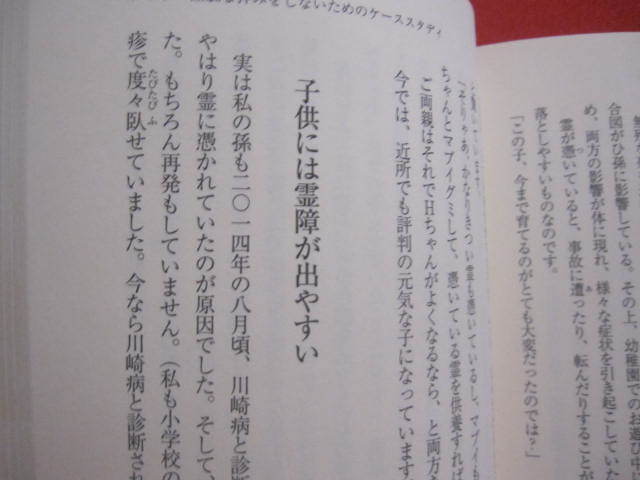 合図がひ孫に影響している。その上、幼稚園でのお遊び中
め、両方の影響が体に現れ、様々な症状を引き起こしていた
霊が憑いていると、事故に遭ったり、転んだりすることが
落としやすいものなのです。
「この子、今まで育てるのがとても大変だったのでは?」
をしないためのケーススタディ
「そりゃあ、かなりきつい霊も憑いているし、マブイも
ちゃんとマブイグミして、憑いている霊を供養すれば
ご両親はそれでHちゃんがよくなるなら、と両方
今では、近所でも評判の元気な子になっています
子供には霊障が出やすい
実は私の孫も二〇一四年の八月頃、川崎病と診
やはり霊に憑かれていたのが原因でした。そして、
た。もちろん再発もしていません。(私も小学校の
疹で度々臥せていました。今なら川崎病と診断され